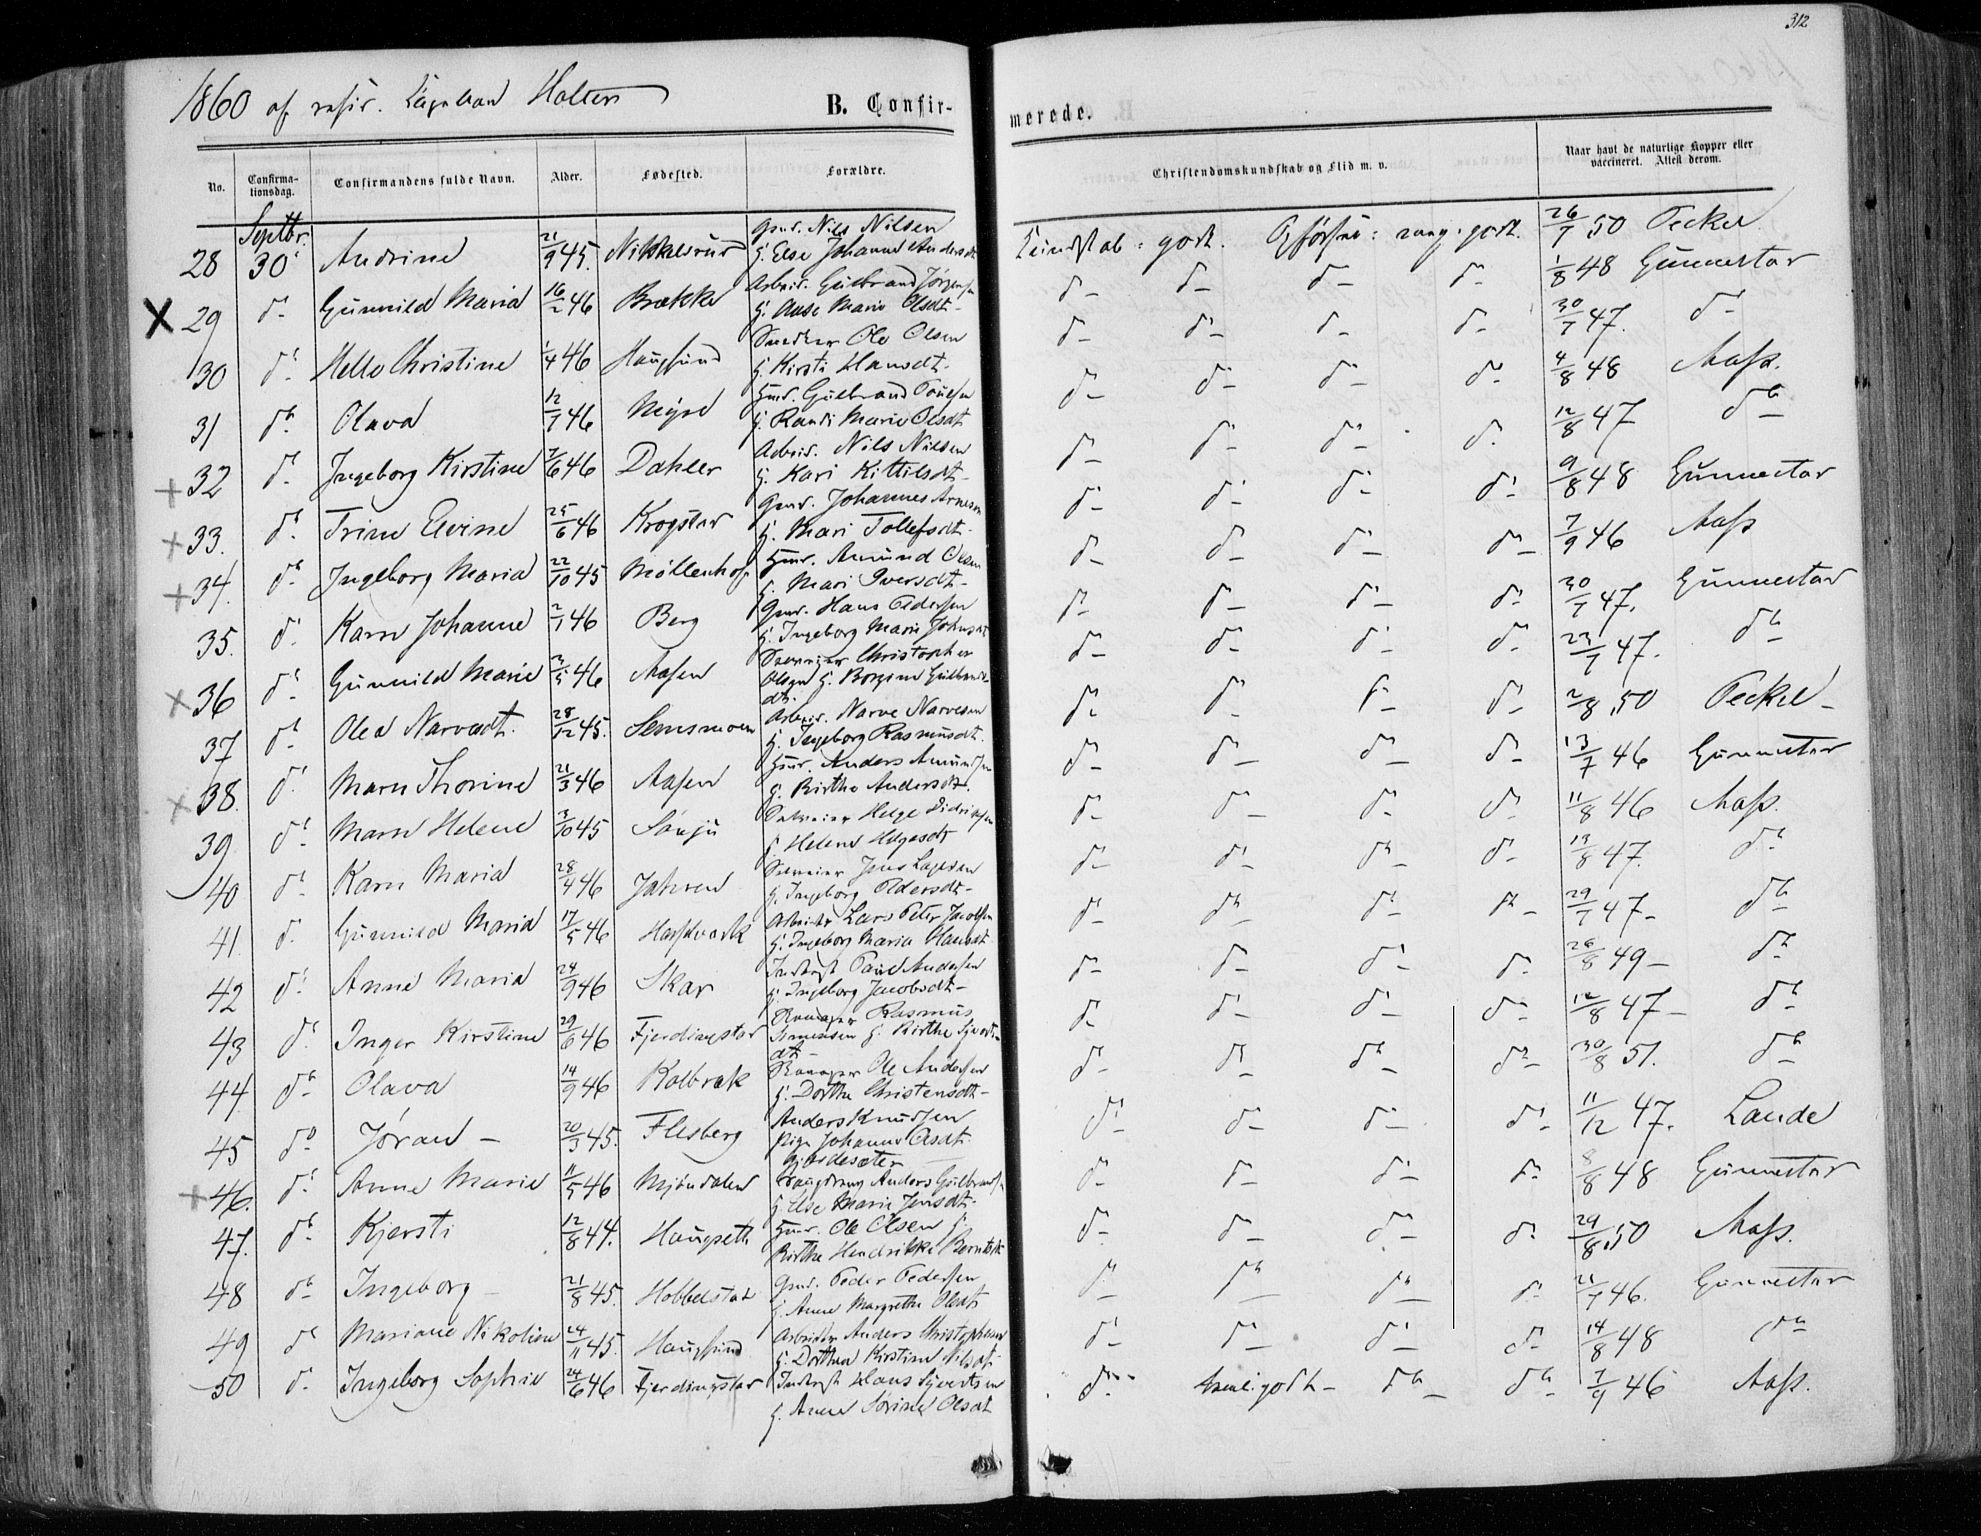 312
1860 af resid. Kapellan Holter
B. Confir-
merede.
No.
Confirma-
tionsdag.
Confirmandens fulde Navn.
Alder.
Fødested.
Forældre.
Christendomskundskab og Flid m. v.
Naar havt de naturlige Kopper eller
vaccineret. Attest derom.
Septbr.
28 30 Andrine 21/9 45. Gmd. Nils Nilsen
H. Else Johanne Andersdt
Kundskab: godt. Opførsel: meg. godt. 26/7 50 Teckel
29 do Gunnild Maria 16/2 46 Brække Arbeid. Gulbrand Jørgensen
H. Anse Marie Olsdt.
do do do do 1/8 48 Gunnestar
30 do Helle Christine 1/4 46 Hougsund Snedker Ole Olsen
H. Kirsti Hansdt.
do do do do 30/7 47. do
31 do Olava 12/7 46 Gulbrand
H. Randi Marie Olsdt
do do do do 4/8 48 Aass.
32 do Ingeborg Kirstine 7/6 46 Dahler Arbeid. Nils Nilsen
H. Kari Kittilsdt.
do do do do 12/8 47 do
33. do Trine Elvine 25/6 46 Krogstar Gmd. Johannes Arnesen
H. Mari Tollefsdt.
do do do do 9/8 48 Gunnestar
34. do Ingeborg Maria 22/10 45 Møllenhof Hmd. Amund Olsen
H. Mari Iversdt.
do do do do 7/9 46 Aass
35. do Karen Johanne 2/1 46 Berg Gmd. Hans Pedersen
H. Ingeborg Marie Johnsdt
do do do do 30/7 47. Gunnestar
36 do Gunnild Marie 3/5 46 Aasen Christopher
Olsen H. Borgine Gulbrands-
dt.
do do do do 23/7 47. do
37 do Olea Narvesdt. 28/12 45. Semsmoen Arbeid. Narve Narvesen
H. Ingeborg Rasmusdt.
do do do do 2/8 50 Teckel
38. do Maren Thorine 21/3 46 Aasen Hmd. Anders Amundsen
H. Birthe Andersdt.
do do do do 13/7 46 Gunnestar
39 do Maren Helene 3/10 45 Helge Didriksen
H. Helene Helgesdt
do do do do 11/8 46 Aass.
40 do Karen Maria 28/4 46 Jahren Jens Lagesen
H. Ingeborg Pedersdt.
do do do do 13/8 47. do
41. do Gunnild Maria 17/5 46 Arbeider Lars Peter Jacobsen
H. Ingeborg Maria Hansdt
do do do do 29/7 47 do
42 do Anne Maria 24/9 46 Skar Inderst Paul Andersen
H. Ingeborg Jacobsdt.
do do do do 26/8 49 do
43 do Inger Kirstine 29/6 46 Fjerdingstar Rasmus
Simensen H. Birthe Syverts-
dt.
do do do do 12/8 47 do
44. do Olava 14/9 46 Kolbræk Ole Andersen
H. Dorthe Christensdt.
do do do do 30/8 51. do
45 do Jøran 20/3 45. Flesberg Anders Knudsen
Pige Johanne Olsdt.
do do do do 11/12 47. Lande
46. do Anne Marie 11/5 46 Mjøndalen Anders Gulbrandsen
H. Else Marie Jensdt.
do do do do 8/8 48 Gunnestar
47. do Kjersti 12/8 44. Hougseth Hmd. Ole Olsen H.
Birthe Hendrikke Berntsdt
do do do do 29/8 50 Aass.
48 do Ingeborg 21/8 45. Hobbelstad Gmd. Peder Pedersen
H. Anne Margrethe Olsdt
do do do do 21/7 46. Gunnestar
49 do Mariane Nikoline 24/11 45. Hougsund Arbeider Anders Christophersen
H. Dorthea Kirstine Nilsdt
do do do do 14/8 48 do
50 do Ingeborg Sophie 24/6 46 Fjerdingstar Inderst Hans Syvertsen
H. Anne Sørine Olsdt
do temli. godt do do 7/9 46 Aass.